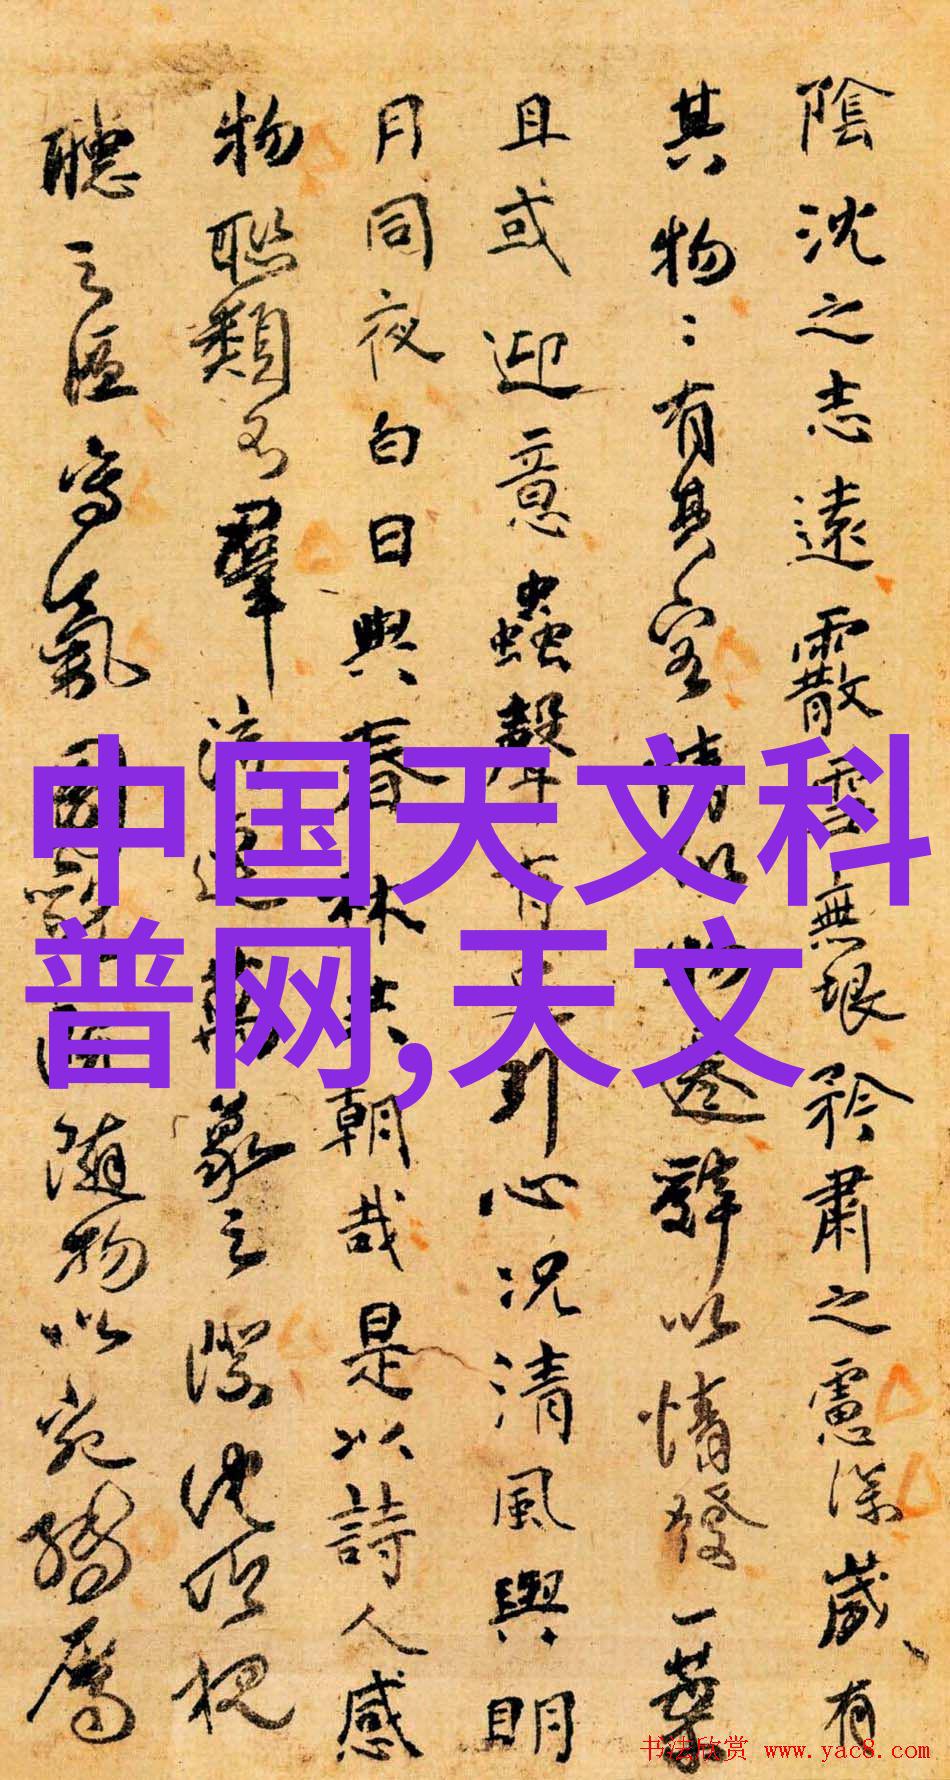 陰沈之志遠霰雪無垠矜肅之慮深歲有
其物:有其容情以物遷辭以情發一葉
且或迎意蟲聲有足引心況清風與明
月同夜白日與春林共朝哉是以詩人感
物聯類不羣流連萬象之際沈吟視
聽之區寫氣圖貌既隨物以宛轉屬
中国天文科
普网,天文
书法欣赏 www.yac8.com